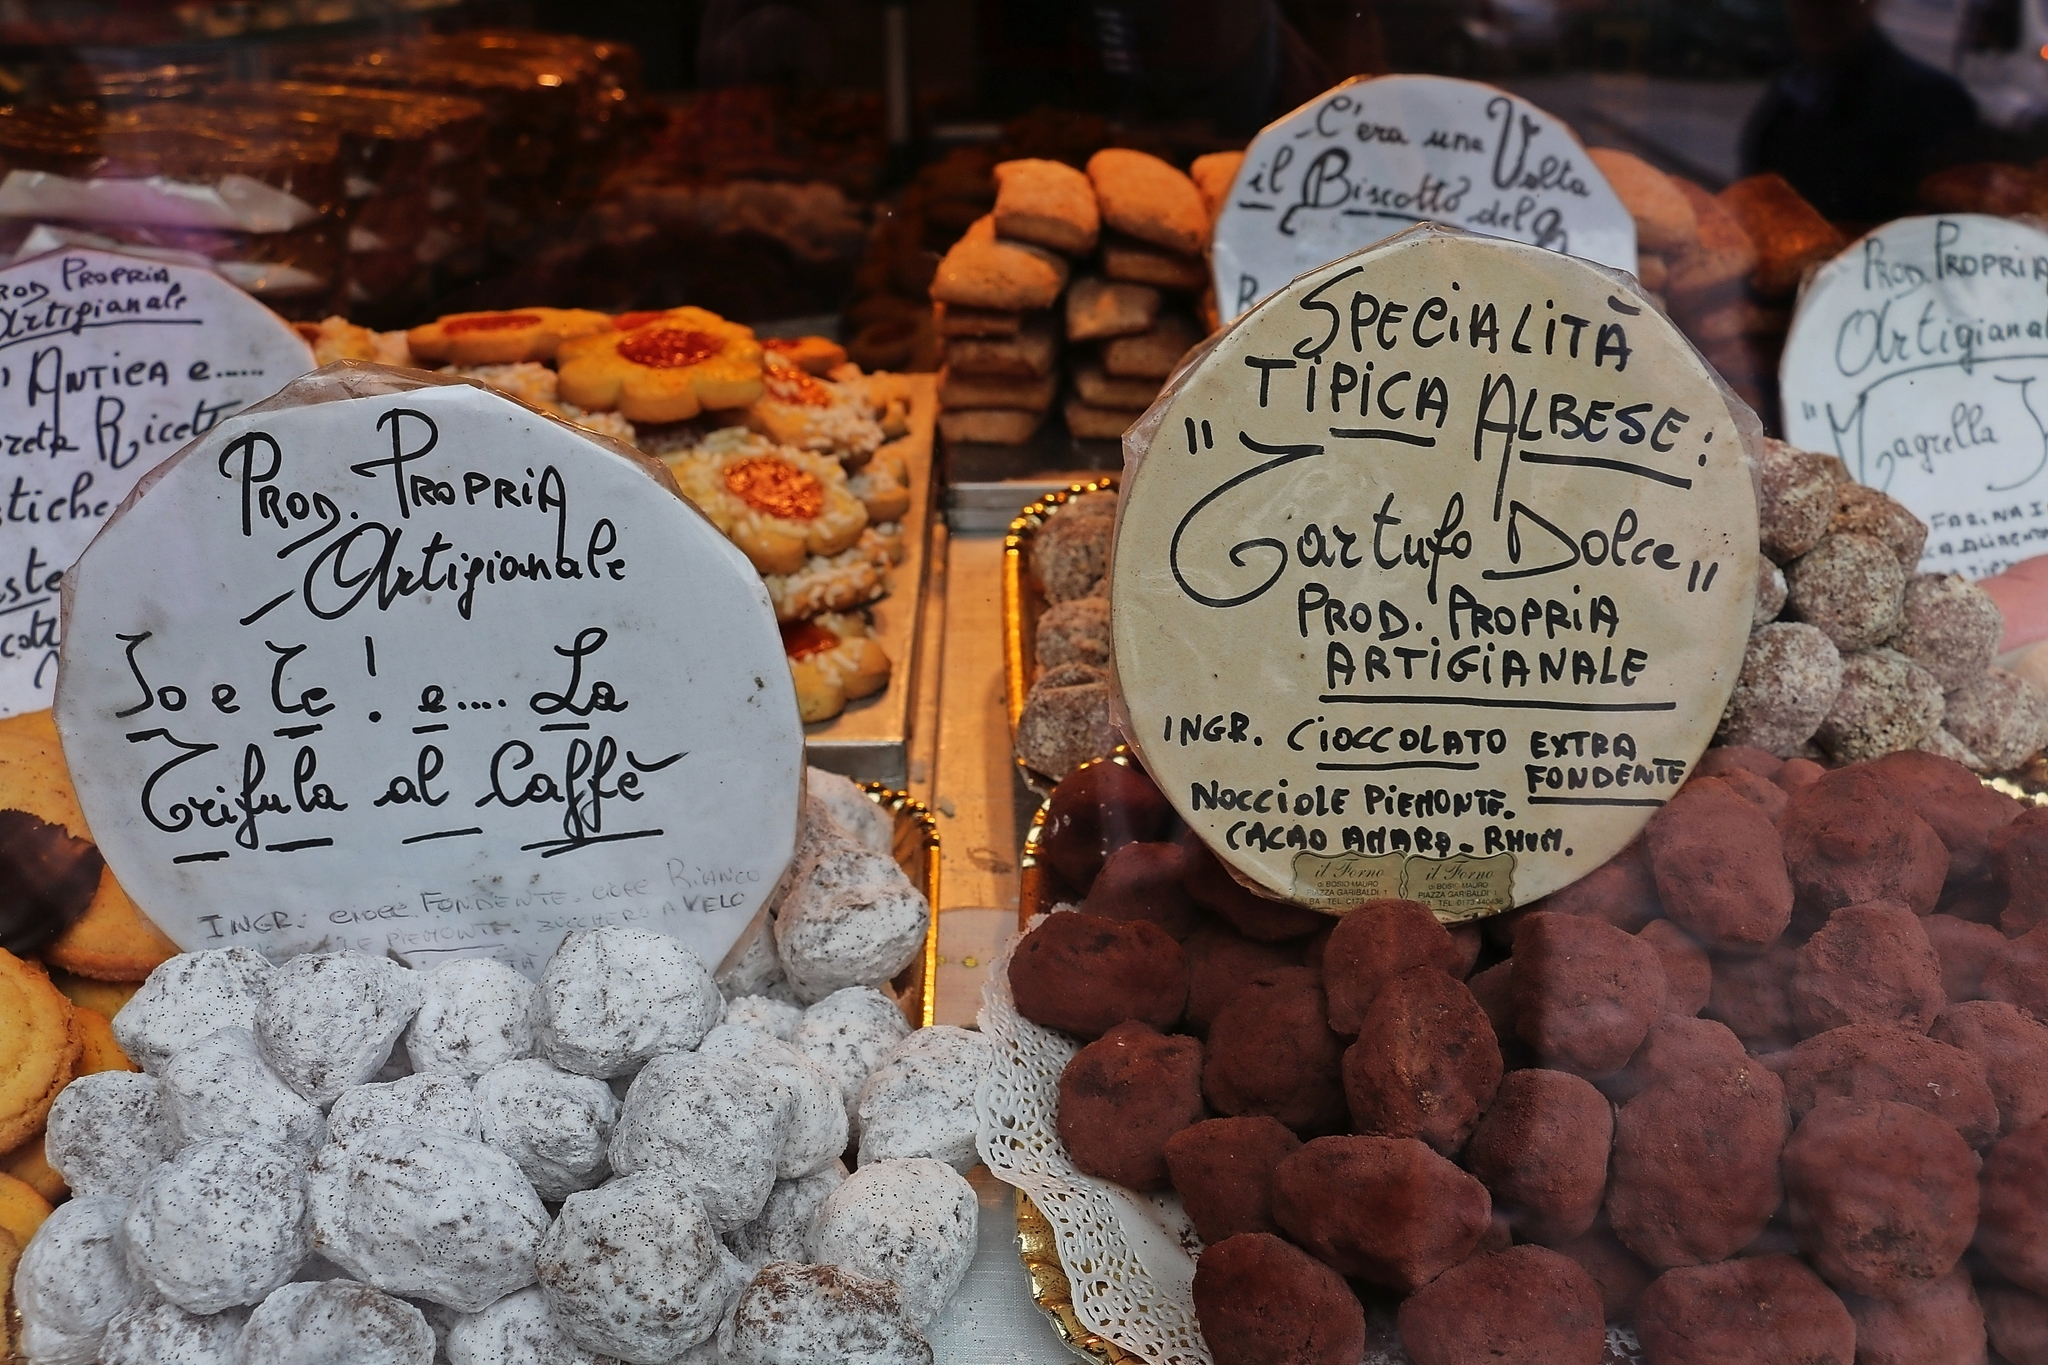 PROD PROPRIA
Artigianale
ANTICA e......
Ricett
stiche
PROD. PROPRIA
Artigianale
Io e Te! e.... La
Trifula al Caffè
INGR: CIOCC. FONDENTE. CIOCC BIANCO
PIEMONTE. ZUCCHERO A VELO
C'era una Volta
il Biscotto del
SPECIALITÀ
TIPICA ALBESE:
"Tartufo Dolce"
PROD. PROPRIA
ARTIGIANALE
INGR. CIOCCOLATO EXTRA
FONDENTE
NOCCIOLE PIEMONTE.
CACAO AMARO - RHUM.
il Forno
di BOSIO MAURO
PIAZZA GARIBALDI, 1
ALBA - TEL. 0173
il Forno
di BOSIO MAURO
PIAZZA GARIBALDI, 1
ALBA - TEL. 0173 440436
PROD. PROPRIA
Artigianal
"Magrella
FARINA